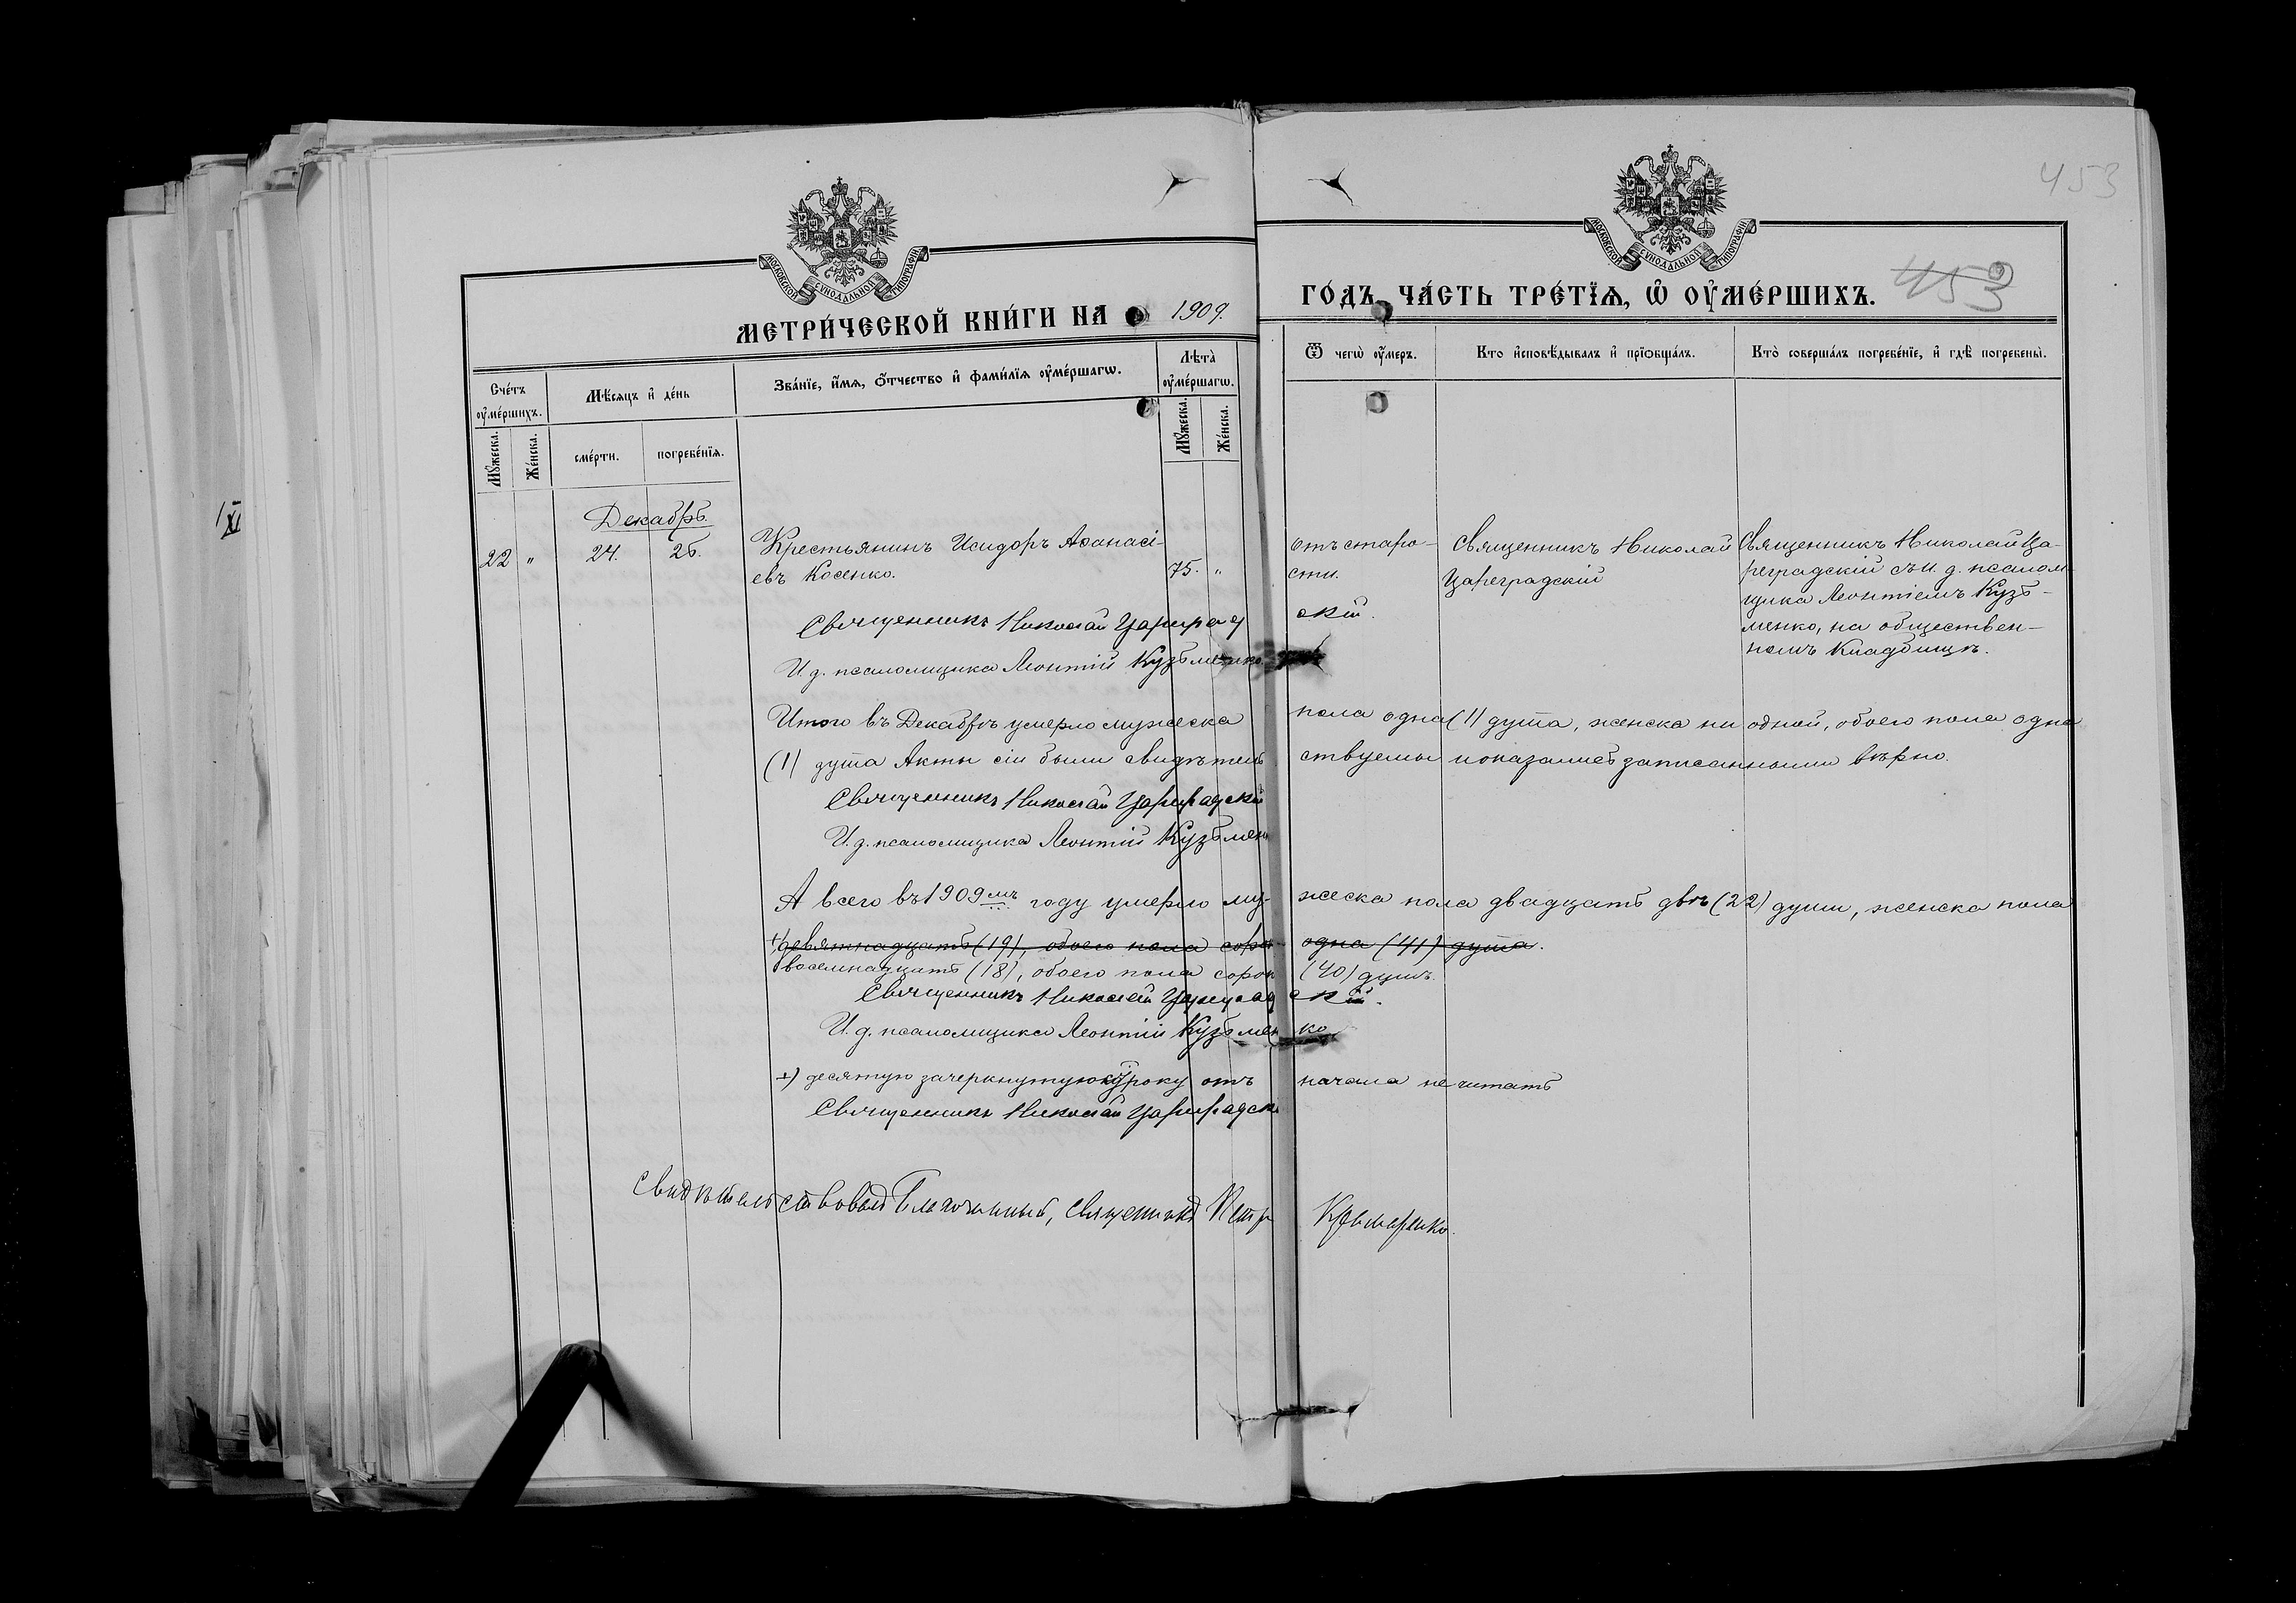 453
МОСКОВСКОЙ СѴНОДАЛЬНОЙ ТИПОГРАФІИ
МОСКОВСКОЙ СѴНОДАЛЬНОЙ ТИПОГРАФІИ
МЕТРИ́ЧЕСКОЙ КНИ́ГИ НА 1909.
ГО́ДЪ, ЧА́СТЬ ТРЕ́ТЇѦ, Ѽ ОУ҆МЕ́РШИХЪ.
453
Сче́тъ оу҆ме́ршихъ.
Мѣ́сѧцъ и҆ де́нь
Зва́нїе, и҆́мѧ, ѻ҆́тчество и҆ фами́лїѧ оу҆ме́ршагѡ.
Лѣта̀ оу҆ме́ршагѡ.
Ѿ чегѡ̀ оу҆́меръ.
Кто̀ и҆сповѣ́дывалъ и҆ прїѡбща́лъ.
Кто̀ соверша́лъ погребе́нїе, и҆ гдѣ̀ погребены̀.
Мꙋ́жеска.
Же́нска.
сме́рти.
погребе́нїѧ.
Мꙋ́жеска.
Же́нска.
XI
Декабрь.
22 " 24. 26. Крестьянинъ Исидоръ Аѳанасі-
евъ Косенко. 75. "
отъ старо-
сти.
Священникъ Николай
Цареградскій
Священникъ Николай Ца-
реградскій съ и. д. псалом-
щика Леонтіемъ Кузь-
менко, на обществен-
номъ кладбищѣ.
Священникъ Николай Цареградскій.
И. д. псаломщика Леонтій Кузьменко
Итого въ Декабрѣ умерло мужеска пола одна (1) душа, женска ни одной, обоего пола одна
(1) душа Акты сіи были свидѣтельствуемы и показались записанными вѣрно.
Священникъ Николай Цареградскій
И. д. псаломщика Леонтій Кузьмен
А всего въ 1909мъ году умерло мужеска пола двадцать двѣ (22) души, женска пола
+) девятнадцать (19), обоего пола сорокъ одна (41) душа.
восемнадцать (18), обоего пола сорок (40) душъ.
Священникъ Николай Цареградскій.
И. д. псаломщика Леонтій Кузьменко
+) десятую зачеркнутую строку отъ начала не читать
Священникъ Николай Цареградскі
Свидѣтельствовалъ Благочинный, Священникъ Петр